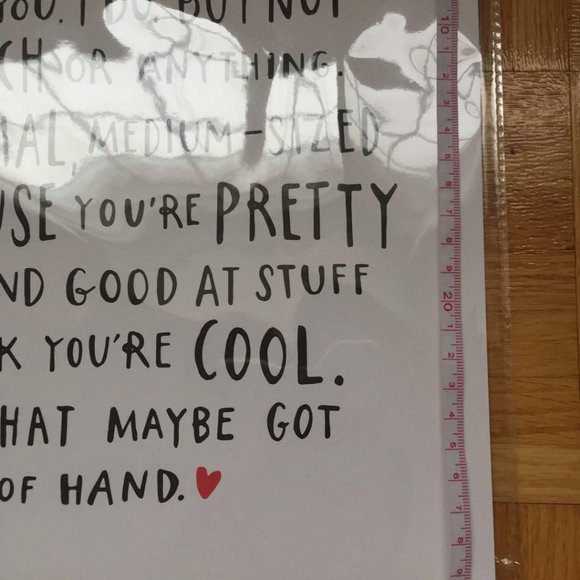 YOU. I DO. BUT NOT
CH OR ANYTHING.
MAL, MEDIUM-SIZED
USE YOU'RE PRETTY
ND GOOD AT STUFF
K YOU'RE COOL.
HAT MAYBE GOT
OF HAND.
10 1 2 3 4 5 6 7 8 9 20 1 2 3 4 5 6 7 8 9